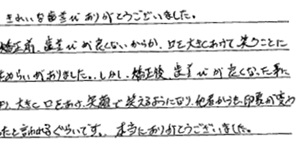 きれいな歯並びありがとうございました。
矯正前、歯並びが良くないからか、口を大きくあけて笑うことに
ためらいがありました。しかし、矯正後、歯並びが良くなった事に
より、大きく口をあけ、笑顔で笑えるようになり、他者からも印象が変わっ
たと言われるぐらいです。本当にありがとうございました。